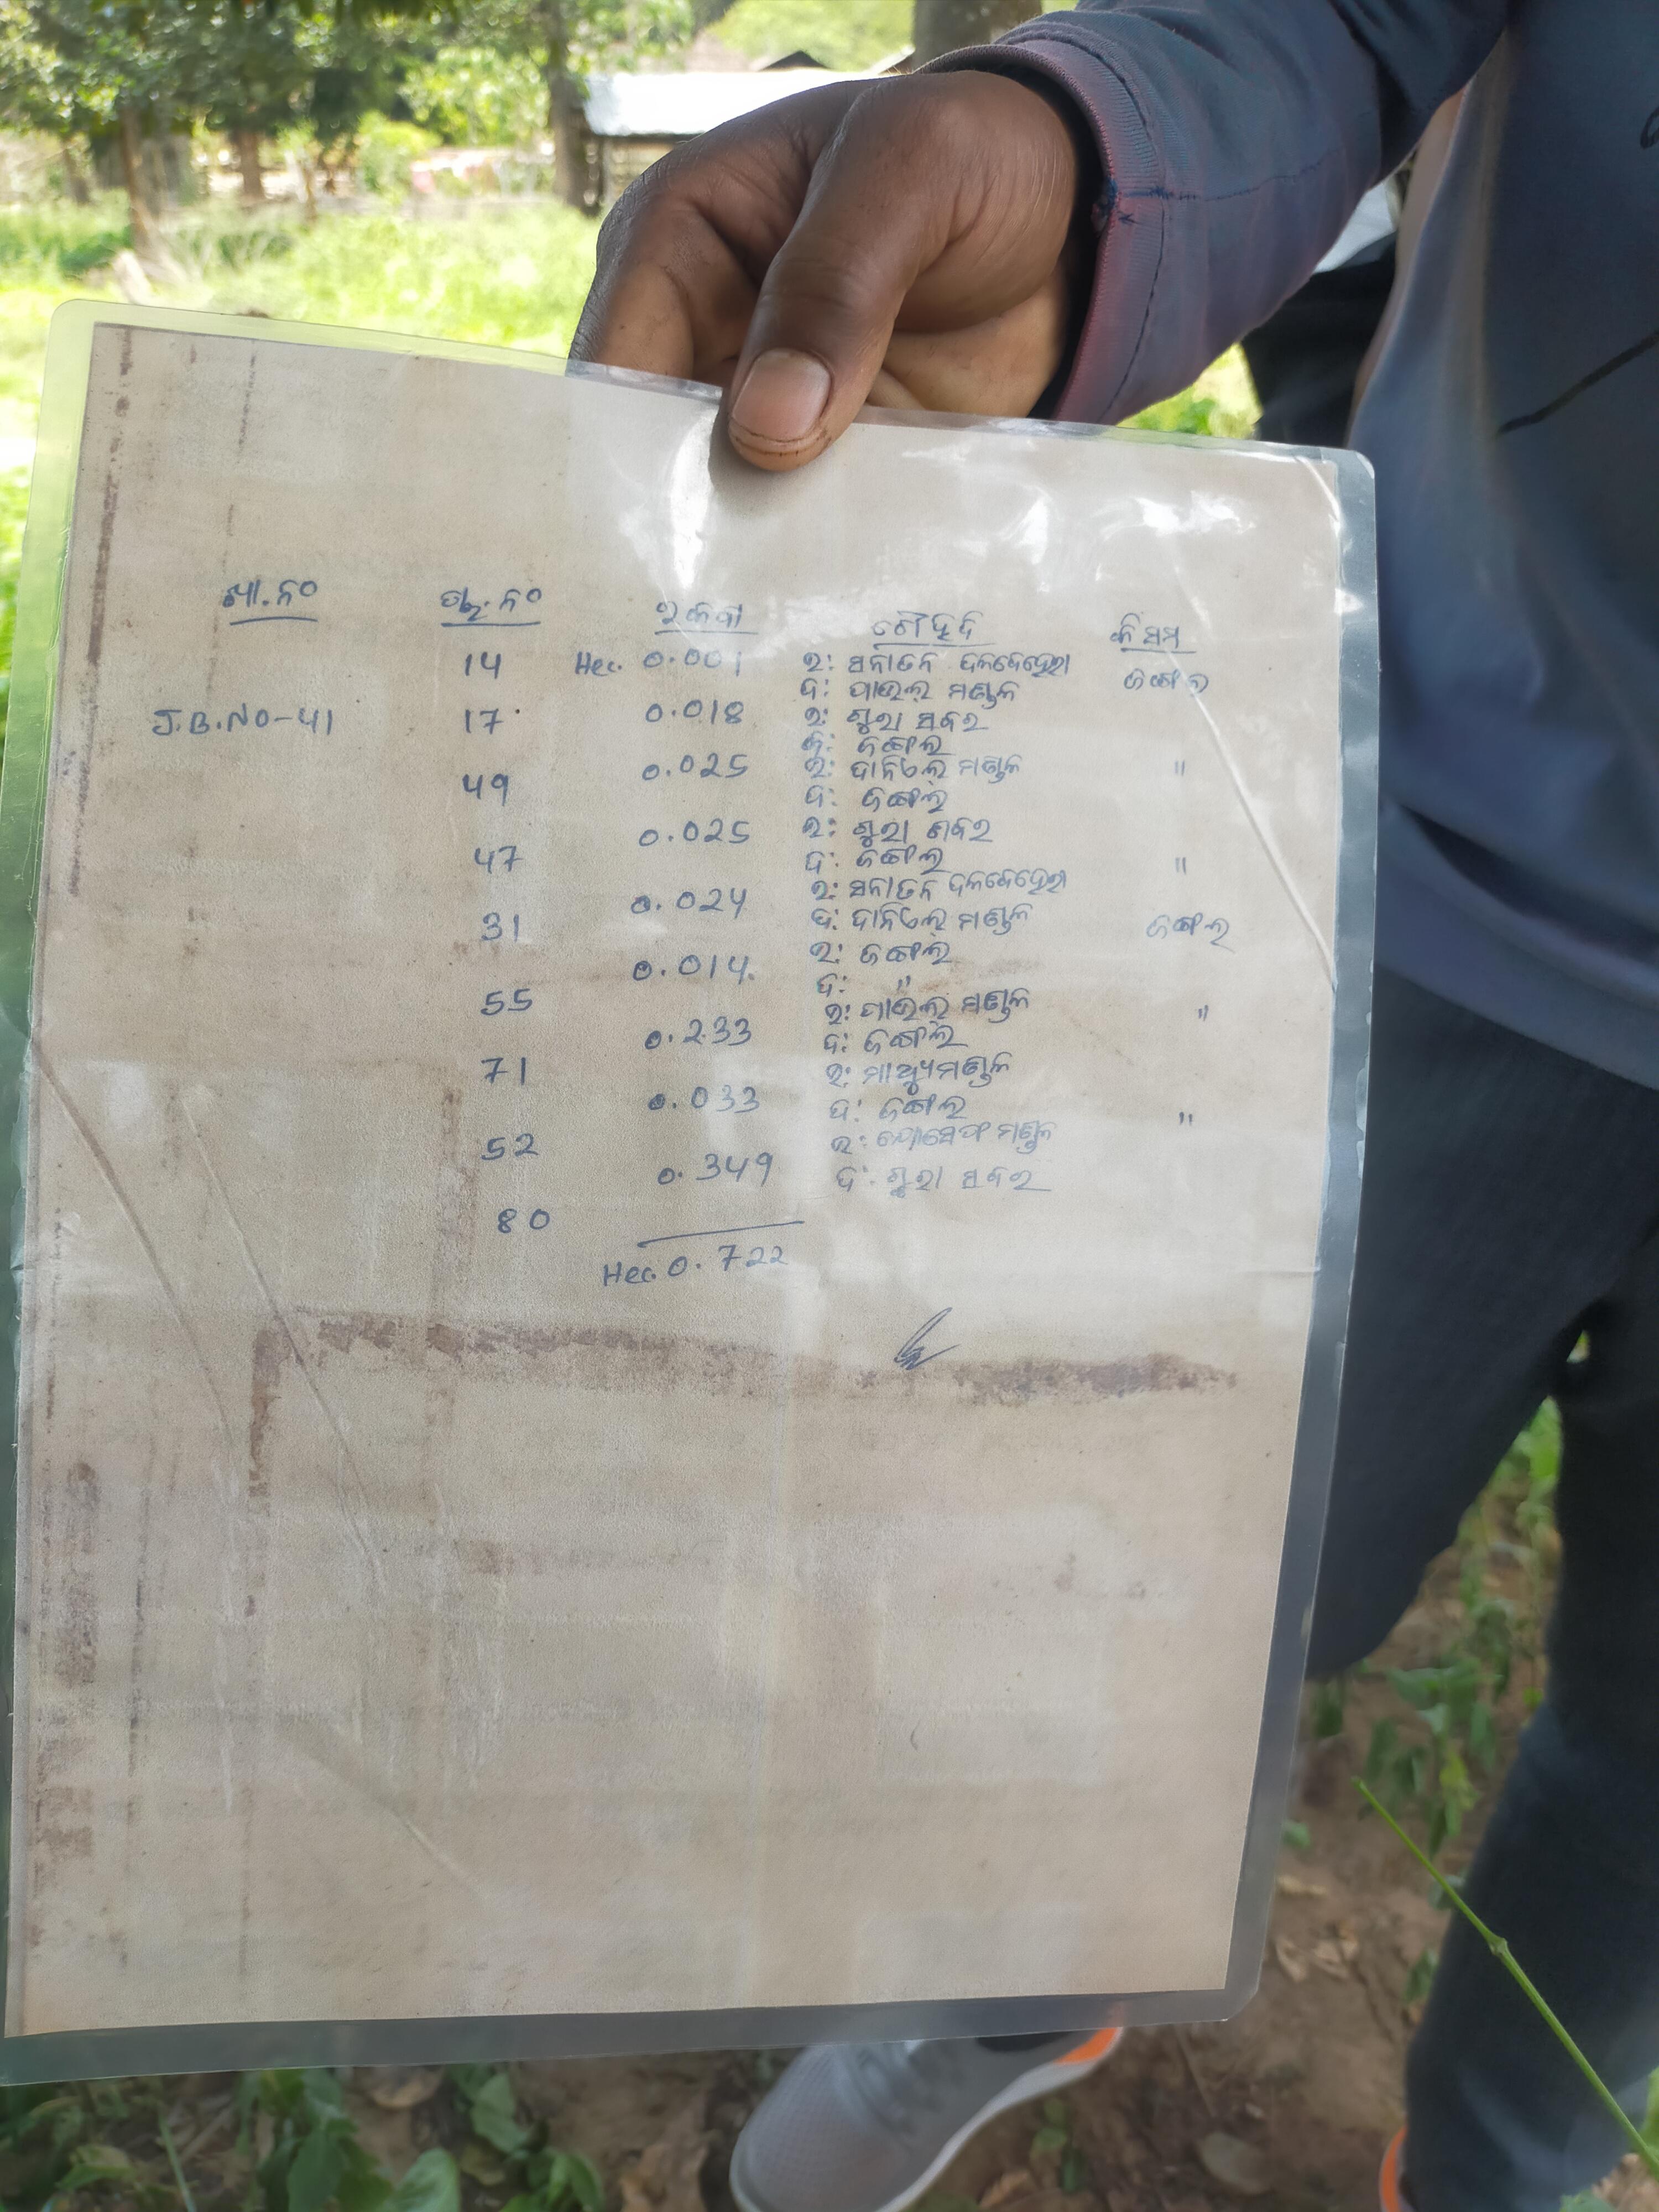 ଖା.ନଂ ପ୍ଲ.ନଂ ରକବା ଚୌହଦି କିସମ
14 Hec. 0.001 ଉ: ସନାତନ ଦଳବେହେରା ଜଙ୍ଗଲ
ଦ: ପାଉଲ୍ ମଣ୍ଡଳ
J.B.NO-41 17 0.018 ଉ: ଶୁରା ସବର
ଦ: ଜଙ୍ଗଲ
49 0.025 ଉ: ଦାନିଏଲ୍ ମଣ୍ଡଳ "
ଦ: ଜଙ୍ଗଲ
47 0.025 ଉ: ଶୁରା ଶବର "
ଦ: ଜଙ୍ଗଲ
31 0.024 ଉ: ସନାତନ ଦଳବେହେରା
ଦ: ଦାନିଏଲ୍ ମଣ୍ଡଳ ଜଙ୍ଗଲ
55 0.014 ଉ: ଜଙ୍ଗଲ
ଦ: "
71 0.233 ଉ: ପାଉଲ୍ ମଣ୍ଡଳ "
ଦ: ଜଙ୍ଗଲ
52 0.033 ଉ: ମାଥ୍ୟୁ ମଣ୍ଡଳ
ଦ: ଜଙ୍ଗଲ "
80 0.349 ଉ: ଯୋସେଫ ମଣ୍ଡଳ
ଦ: ଶୁରା ସବର
Hec. 0.722